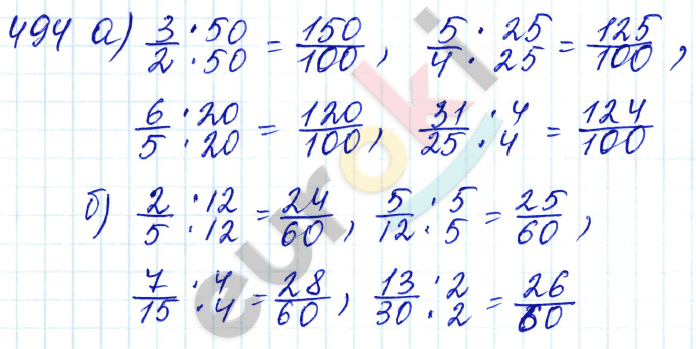 494 а) 3/2 · 50/50 = 150/100, 5/4 · 25/25 = 125/100,
6/5 · 20/20 = 120/100, 31/25 · 4/4 = 124/100
б) 2/5 · 12/12 = 24/60, 5/12 · 5/5 = 25/60,
7/15 · 4/4 = 28/60, 13/30 · 2/2 = 26/60
euroki